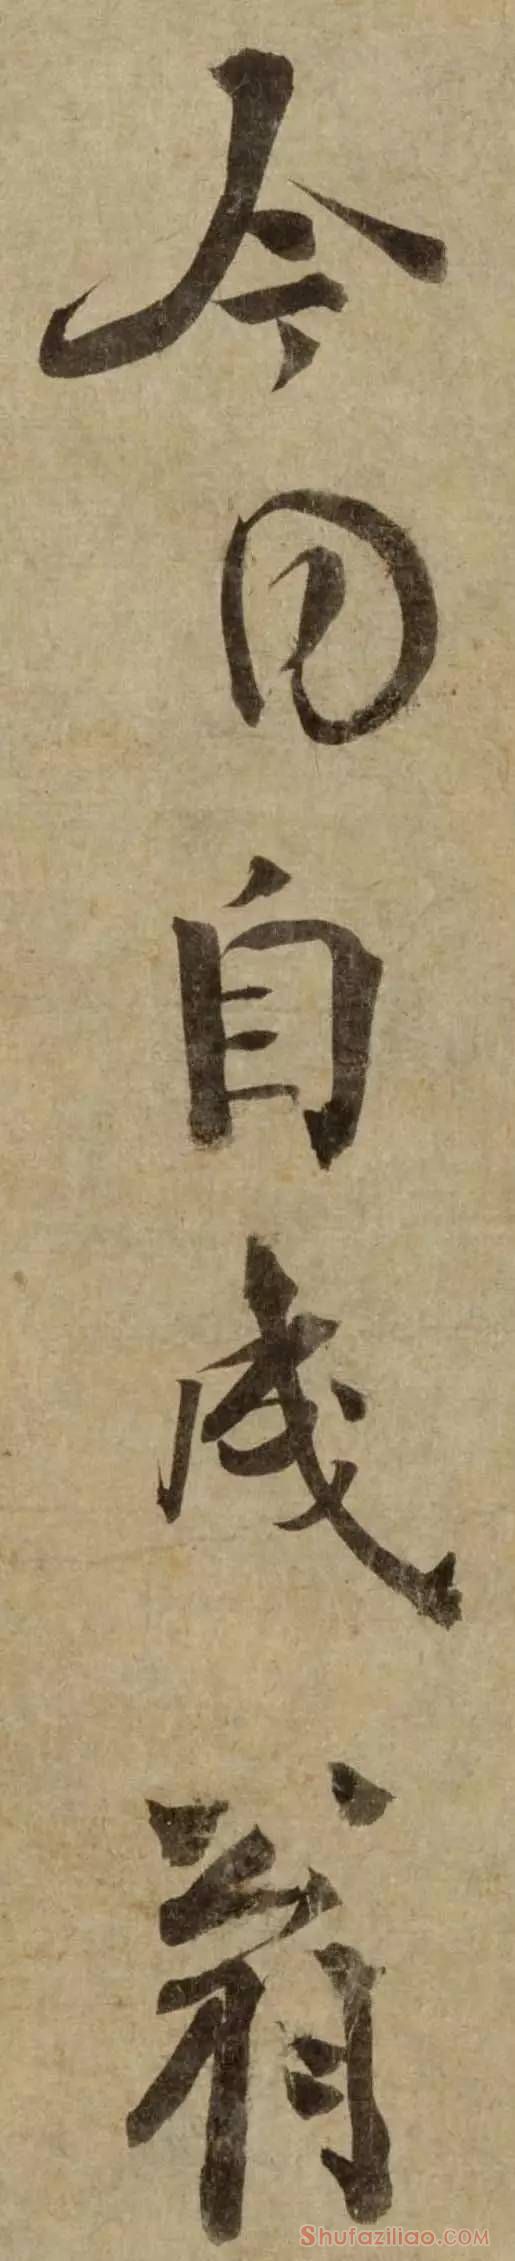 今日自成翁
Shufaziliao.COM